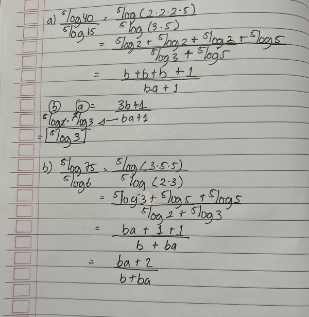 a) ⁵log 40 / ⁵log 15 = ⁵log (2.2.2.5) / ⁵log (3.5)
= ⁵log 2 + ⁵log 2 + ⁵log 2 + ⁵log 5 / ⁵log 3 + ⁵log 5
= b + b + b + 1 / ba + 1
(b) (a) = 3b+1 / ba+1
⁵log 2 . ²log 3
= ⁵log 3
b) ⁵log 75 / ⁵log 6 = ⁵log (3.5.5) / ⁵log (2.3)
= ⁵log 3 + ⁵log 5 + ⁵log 5 / ⁵log 2 + ⁵log 3
= ba + 1 + 1 / b + ba
= ba + 2 / b + ba